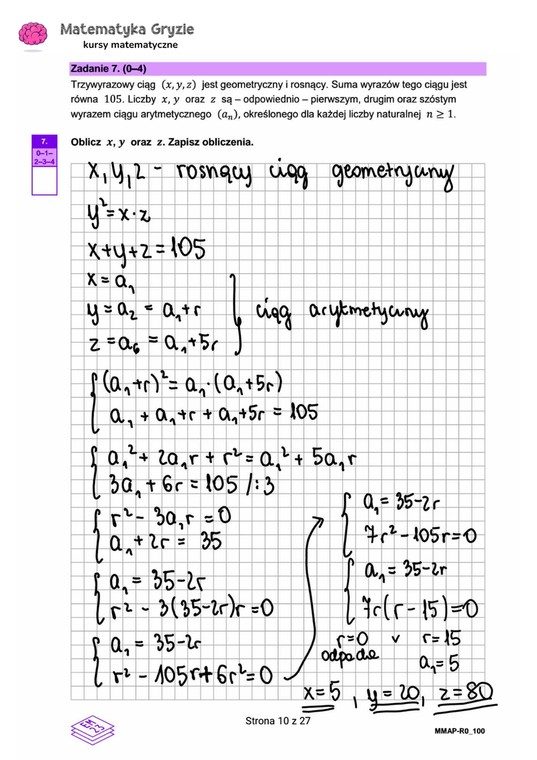 Matematyka Gryzie
kursy matematyczne
Zadanie 7. (0–4)
Trzywyrazowy ciąg (x, y, z) jest geometryczny i rosnący. Suma wyrazów tego ciągu jest
równa 105. Liczby x, y oraz z są – odpowiednio – pierwszym, drugim oraz szóstym
wyrazem ciągu arytmetycznego (aₙ), określonego dla każdej liczby naturalnej n ≥ 1.
7.
0–1–
2–3–4
Oblicz x, y oraz z. Zapisz obliczenia.
x, y, z - rosnący ciąg geometryczny
y² = x·z
x+y+z = 105
x = a₁
y = a₂ = a₁+r
z = a₆ = a₁+5r
ciąg arytmetyczny
(a₁+r)² = a₁·(a₁+5r)
a₁ + a₁+r + a₁+5r = 105
a₁² + 2a₁r + r² = a₁² + 5a₁r
3a₁ + 6r = 105 /:3
r² - 3a₁r = 0
a₁ + 2r = 35
a₁ = 35-2r
r² - 3(35-2r)r = 0
a₁ = 35-2r
r² - 105r + 6r² = 0
a₁ = 35-2r
7r² - 105r = 0
a₁ = 35-2r
7r(r - 15) = 0
r=0 v r=15
odpada
a₁ = 5
x=5, y=20, z=80
Strona 10 z 27
MMAP-R0_100